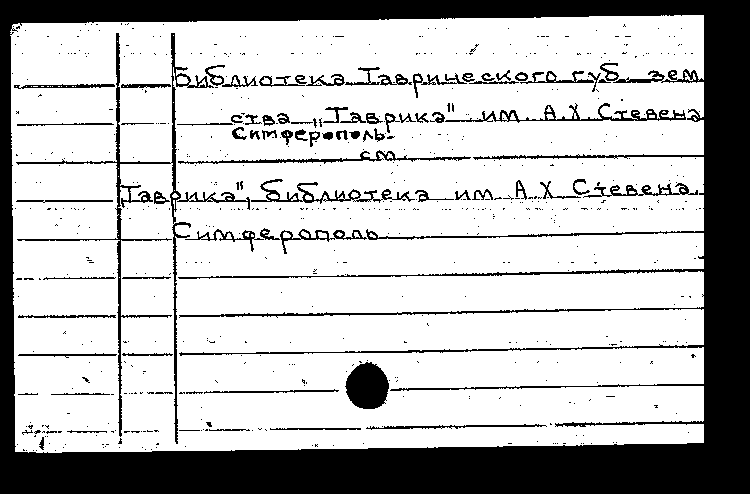 Библиотека Таврического губ. зем
ства „Таврика" им. А.Х. Стевена
Симферополь.
см.
„Таврика", библиотека им А Х Стевена.
Симферополь